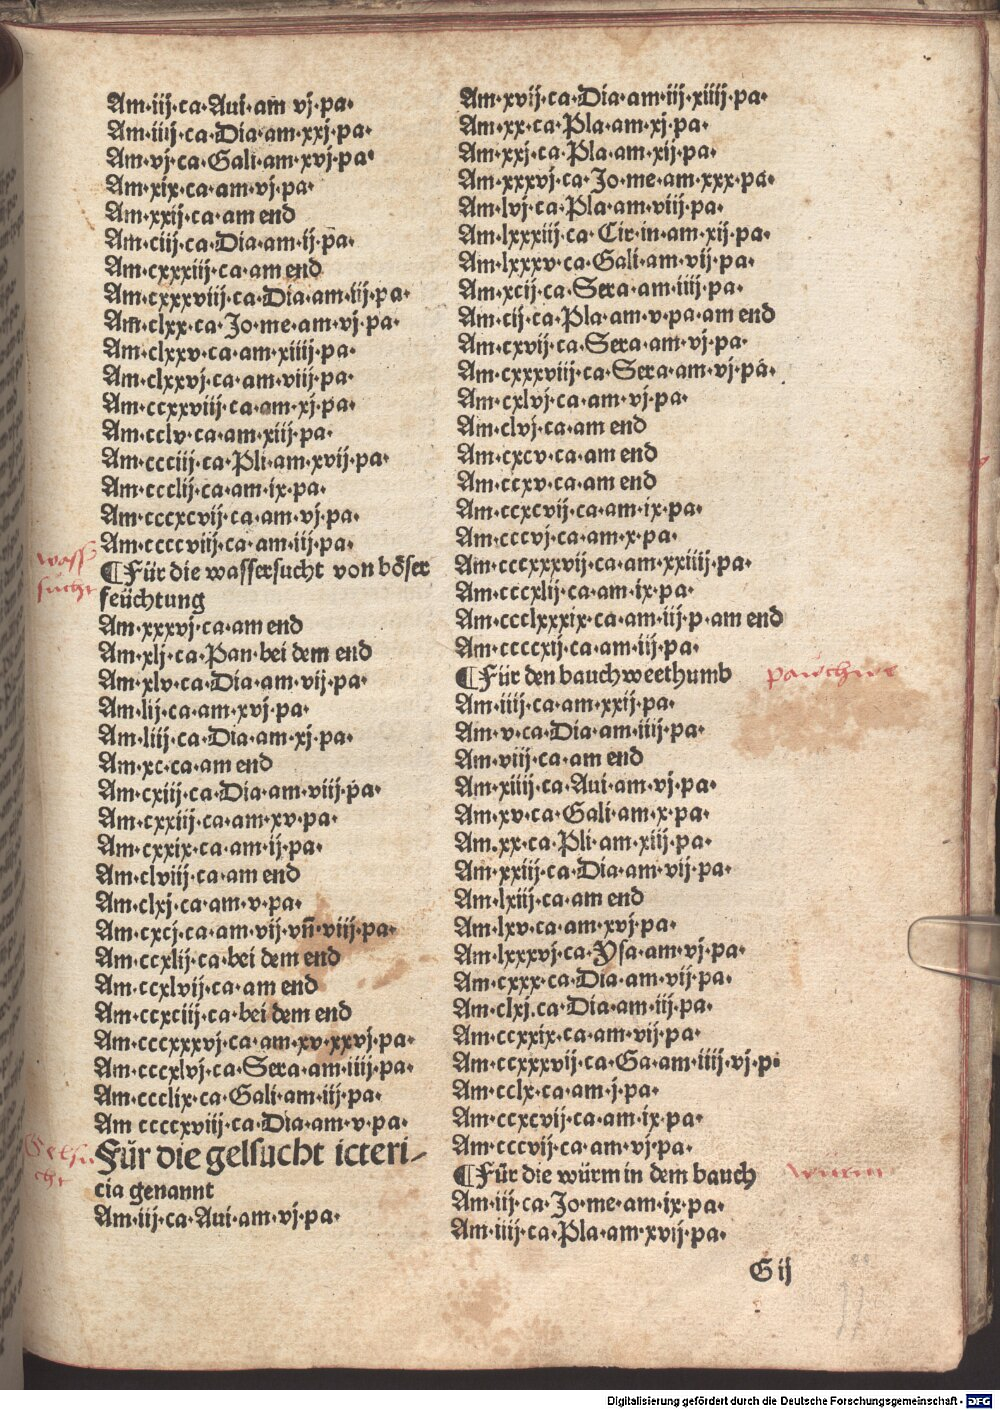 Am·iij·ca·Aui·am vj·pa·
Am·iiij·ca·Dia·am·xxj·pa·
Am·vj·ca·Gali·am·xvj·pa·
Am·xix·ca·am·vj·pa·
Am·xxij·ca·am end
Am·ciij·ca·Dia·am·ij·pa·
Am·cxxxiij·ca·am end
Am·cxxxviij·ca·Dia·am·iij·pa·
Am·clxx·ca·Jo·me·am·vj·pa·
Am·clxxv·ca·am·xiiij·pa·
Am·clxxvj·ca·am·viij·pa·
Am·ccxxviij·ca·am·xj·pa·
Am·cclv·ca·am·xiij·pa·
Am·ccciij·ca·Pli·am·xvij·pa·
Am·ccclij·ca·am·ix·pa·
Am·cccxcvij·ca·am·vj·pa·
Am·ccccviij·ca·am·iij·pa·
wass
sucht
¶Für die wassersucht von böser
feüchtung
Am·xxxvj·ca·am end
Am·xlj·ca·Pan·bei dem end
Am·xlv·ca·Dia·am·vij·pa·
Am·lij·ca·am·xvj·pa·
Am·liij·ca·Dia·am·xj·pa·
Am·xc·ca·am end
Am·cxiij·ca·Dia·am·viij·pa·
Am·cxxiij·ca·am·xv·pa·
Am·cxxix·ca·am·ij·pa·
Am·clviij·ca·am end
Am·clxj·ca·am·v·pa·
Am·cxcj·ca·am·vij·vñ·viij·pa·
Am·ccxlij·ca·bei dem end
Am·ccxlvij·ca·am end
Am·ccxciij·ca·bei dem end
Am·cccxxxvj·ca·am·xv·xxvj·pa·
Am·cccxlvj·ca·Sera·am·iiij·pa·
Am·ccclix·ca·Gali·am·iij·pa·
Am ccccxviij·ca·Dia·am·v·pa·
Gelsu
cht
Für die gelsucht icteri-
cia genannt
Am·iij·ca·Aui·am·vj·pa·
Am·xvij·ca·Dia·am·iij·xiiij·pa·
Am·xx·ca·Pla·am·xj·pa·
Am·xxj·ca·Pla·am·xij·pa·
Am·xxxvj·ca·Jo·me·am·xxx·pa·
Am·lvj·ca·Pla·am·viij·pa·
Am·lxxxiij·ca·Cir·in·am·xij·pa·
Am·lxxxv·ca·Gali·am·vij·pa·
Am·xcij·ca·Sera·am·iiij·pa·
Am·cij·ca·Pla·am·v·pa·am end
Am·cxvij·ca·Sera·am·vj·pa·
Am·cxxxviij·ca·Sera·am·vj·pa·
Am·cxlvj·ca·am·vj·pa·
Am·clvj·ca·am end
Am·cxcv·ca·am end
Am·ccxv·ca·am end
Am·ccxcvij·ca·am·ix·pa·
Am·cccvj·ca·am·x·pa·
Am·cccxxxvij·ca·am·xxiiij·pa·
Am·cccxlij·ca·am·ix·pa·
Am·ccclxxxix·ca·am·iij·p·am end
Am·ccccxij·ca·am·iij·pa·
¶Für den bauchweethumb
pauchwe
Am·iiij·ca·am·xxij·pa·
Am·v·ca·Dia·am·iiij·pa·
Am·viij·ca·am end
Am·xiiij·ca·Aui·am·vj·pa·
Am·xv·ca·Gali·am·x·pa·
Am·xx·ca·Pli·am·xiij·pa·
Am·xxiij·ca·Dia·am·vij·pa·
Am·lxiij·ca·am end
Am·lxv·ca·am·xvj·pa·
Am·lxxxvj·ca·Ysa·am·vj·pa·
Am·cxxx·ca·Dia·am·vij·pa·
Am·clxj.ca·Dia·am·iij·pa·
Am·ccxxix·ca·am·vij·pa·
Am·ccxxxvij·ca·Ga·am·iiij·vj·p·
Am·cclx·ca·am·j·pa·
Am·ccxcvij·ca·am·ix·pa·
Am·cccvij·ca·am·vj·pa·
¶Für die würm in dem bauch
wurm
Am·iij·ca·Jo·me·am·ix·pa·
Am·iiij·ca·Pla·am·xvij·pa·
G ij
Digitalisierung gefördert durch die Deutsche Forschungsgemeinschaft - DFG